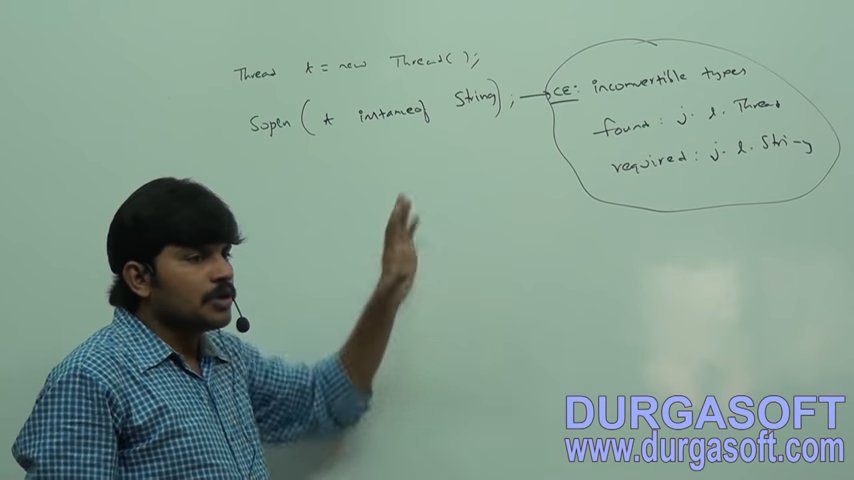 Thread t = new Thread( );
Sopln ( t instanceof String ) ; → CE: inconvertible types
found : j. l. Thread
required : j. l. String
DURGASOFT
www.durgasoft.com